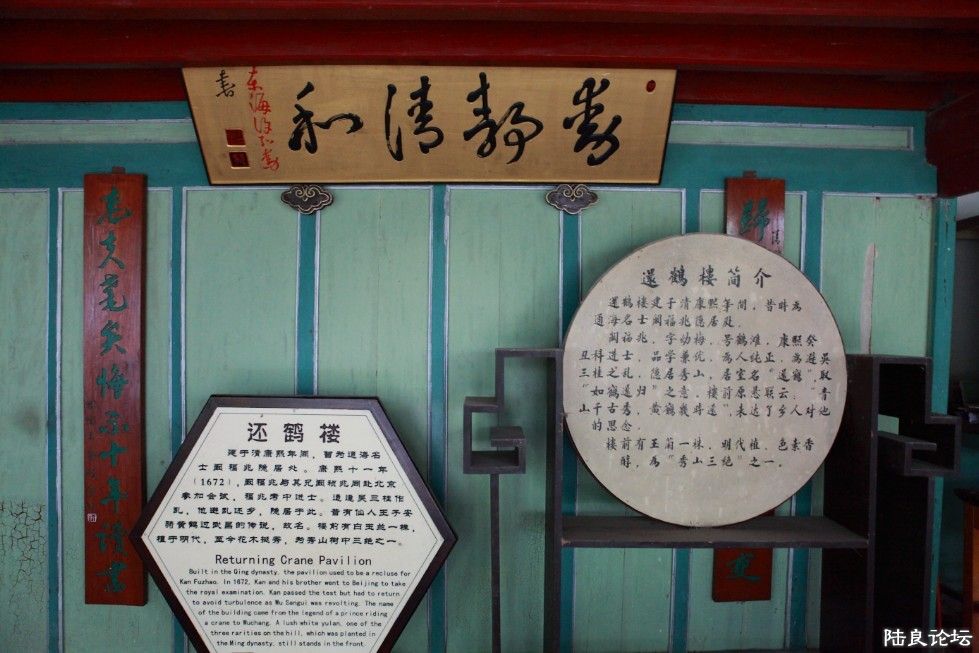 静清和
老夫耄矣悔不十年读书
歸
更
還鶴樓简介
還鶴樓建于清康熙年间，昔时為
通海名士阚福兆隐居处。
阚福兆，字幼梅，号鹤滩，康熙癸
丑科进士，品学兼优，為人纯正，為避吴
三桂之乱，隐居秀山，居室名“還鶴”取
“如鶴還归”之意，楼前原悬联云：“青
山千古秀，黄鶴幾时還”，表达了乡人对他
的思念。
楼前有玉兰一株，明代植，色素香
醇，為“秀山三绝”之一。
还鹤楼
建于清康熙年间，曾为通海名
士阚福兆隐居处。康熙十一年
(1672)，阚福兆与其兄阚祯兆同赴北京
参加会试，福兆考中进士。适逢吴三桂作
乱，他避乱还乡，隐居于此。昔有仙人王子安
骑黄鹤过武昌的传说，故名。楼前有白玉兰一棵，
植于明代，至今花木挺秀，为秀山树中三绝之一。
Returning Crane Pavilion
Built in the Qing dynasty, the pavilion used to be a recluse for
Kan Fuzhao. In 1672, Kan and his brother went to Beijing to take
the royal examination. Kan passed the test but had to return
to avoid turbulence as Wu Sangui was revolting. The name
of the building came from the legend of a prince riding
a crane to Wuchang. A lush white yulan, one of the
three rarities on the hill, which was planted in
the Ming dynasty, still stands in the front.
陆良论坛